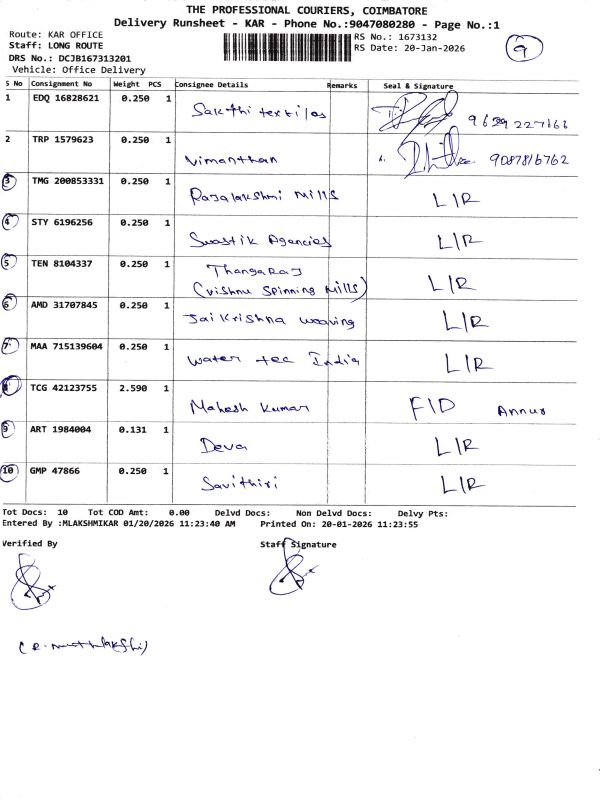 THE PROFESSIONAL COURIERS, COIMBATORE
Delivery Runsheet - KAR - Phone No.:9047080280 - Page No.:1
Route: KAR OFFICE
Staff: LONG ROUTE
DRS No.: DCJB167313201
Vehicle: Office Delivery
RS No.: 1673132
RS Date: 20-Jan-2026
9
S No Consignment No Weight PCS Consignee Details Remarks Seal & Signature
1 EDQ 16828621 0.250 1 Sakthi textiles
2 TRP 1579623 0.250 1 Vimanthan 9087816762
3 TMG 200853331 0.250 1 Rajalakshmi Mills L/R
4 STY 6196256 0.250 1 Swastik Agencies L/R
5 TEN 8104337 0.250 1 Thangaraj L/R
(Vishnu Spinning Mills)
6 AMD 31707845 0.250 1 Jai Krishna weaving L/R
7 MAA 715139604 0.250 1 Water tec India L/R
8 TCG 42123755 2.590 1 Mahesh Kumar F/D Annur
9 ART 1984004 0.131 1 Deva L/R
10 GMP 47866 0.250 1 Savithiri L/R
Tot Docs: 10 Tot COD Amt: 0.00 Delvd Docs: Non Delvd Docs: Delvy Pts:
Entered By :MLAKSHMIKAR 01/20/2026 11:23:40 AM Printed On: 20-01-2026 11:23:55
Verified By Staff Signature